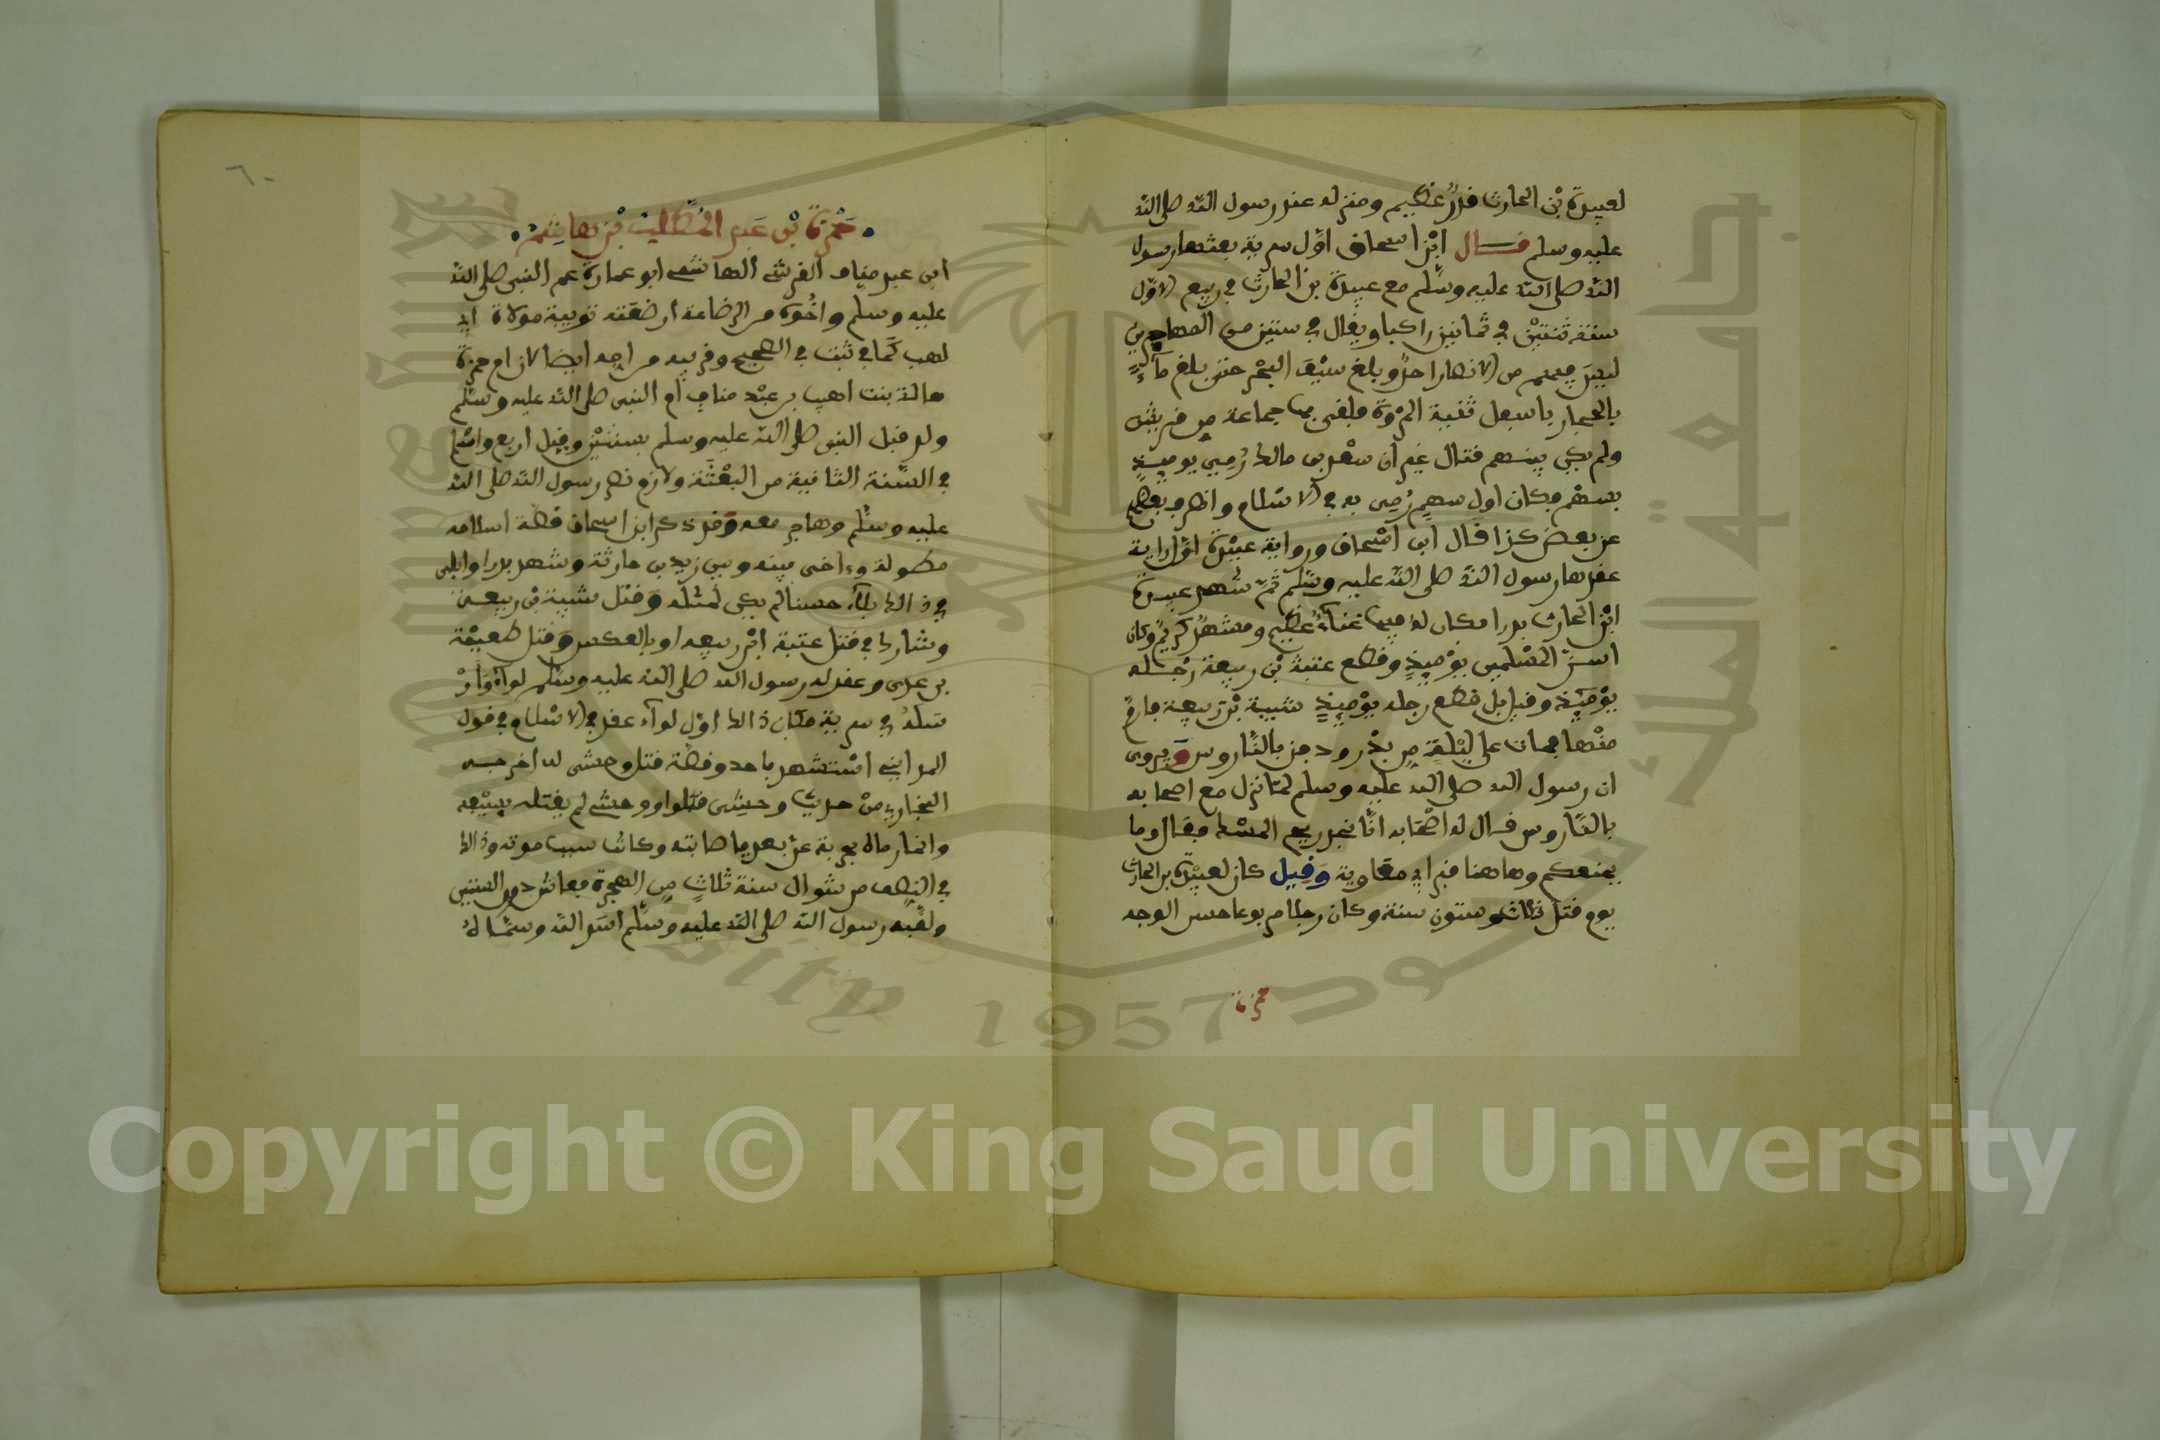 لعبيدة بن الحارث قدر عظيم ومنزلة عند رسول الله صلى الله
عليه وسلم قال ابن اسحاق اول سرية بعثها رسول
الله صلى الله عليه وسلم مع عبيدة بن الحارث في ربيع الاول
سنة ثنتين في ثمانين راكبا ويقال في ستين من المهاجرين
ليس فيهم من الانصار احد وبلغ سيف البحر حتى بلغ ماء
بالحجاز باسفل ثنية المرة فلقي بها جماعة من قريش
ولم يكن بينهم قتال غير ان سعد بن مالك رمي يوميذ
بسهم فكان اول سهم رمي به في الاسلام وانصرف بعضهم
عن بعض كذا قال ابن اسحاق وراية عبيدة اول راية
عقدها رسول الله صلى الله عليه وسلم ثم شهد عبيدة
ابن الحارث بدرا فكان له فيها غناء عظيم ومشهد كريم وكان
اسن المسلمين يوميذ وقطع عتبة بن ربيعة رجله
يوميذ وقيل بل قطع رجله يوميذ شيبة بن ربيعة فارتث
منها فمات على ليلة من بدر ودفن بالتاروس ويروى
ان رسول الله صلى الله عليه وسلم لما نزل مع اصحابه
بالتاروس قال له اصحابه انا نجد ريح المسك فقال وما
يمنعكم وهاهنا قبر ابي معاوية وقيل كان لعبيدة بن الحارث
يوم قتل ثلاث وستون سنة وكان رجلا مربوعا حسن الوجه
حمزة
٦٠
حمزة بن عبد المطلب بن هاشم
ابن عبد مناف القرشي الهاشمي ابو عمارة عم النبي صلى الله
عليه وسلم واخوه من الرضاعة ارضعته ثويبة مولاة ابي
لهب كما في ثبت في الصحيح وقريبه من امه ايضا لان ام حمزة
هالة بنت اهيب بن عبد مناف ام النبي صلى الله عليه وسلم
ولد قبل النبي صلى الله عليه وسلم بسنتين وقيل اربع واسلم
في السنة الثانية من البعثة ولازم نصر رسول الله صلى الله
عليه وسلم وهاجر معه وقد ذكر ابن اسحاق قصة اسلامه
مطولة وءاخى بينه وبين زيد بن حارثة وشهد بدرا وابلى
في ذالك بلاء حسنا لم يكن لمثله وقتل شيبة بن ربيعة
وشارك في قتل عتبة ابن ربيعه او بالعكس وقتل طعيمة
بن عدي وعقد له رسول الله صلى الله عليه وسلم لواء وار
سله في سرية فكان ذالك اول لواء عقد في الاسلام في قول
المدايني استشهد باحد وقصة قتل وحشي له اخرجه
البخاري من حديث وحشي قالوا ووحشي لم يقتله بسيفه
وانما رماه بحربة عن بعد فاصابته وكانت سبب موته وذالك
في النصف من شوال سنة ثلاث من الهجرة فعاش دون الستين
ولقبه رسول الله صلى الله عليه وسلم اسد الله وسماه
جامعة الملك سعود
King Saud University
1957
Copyright © King Saud University